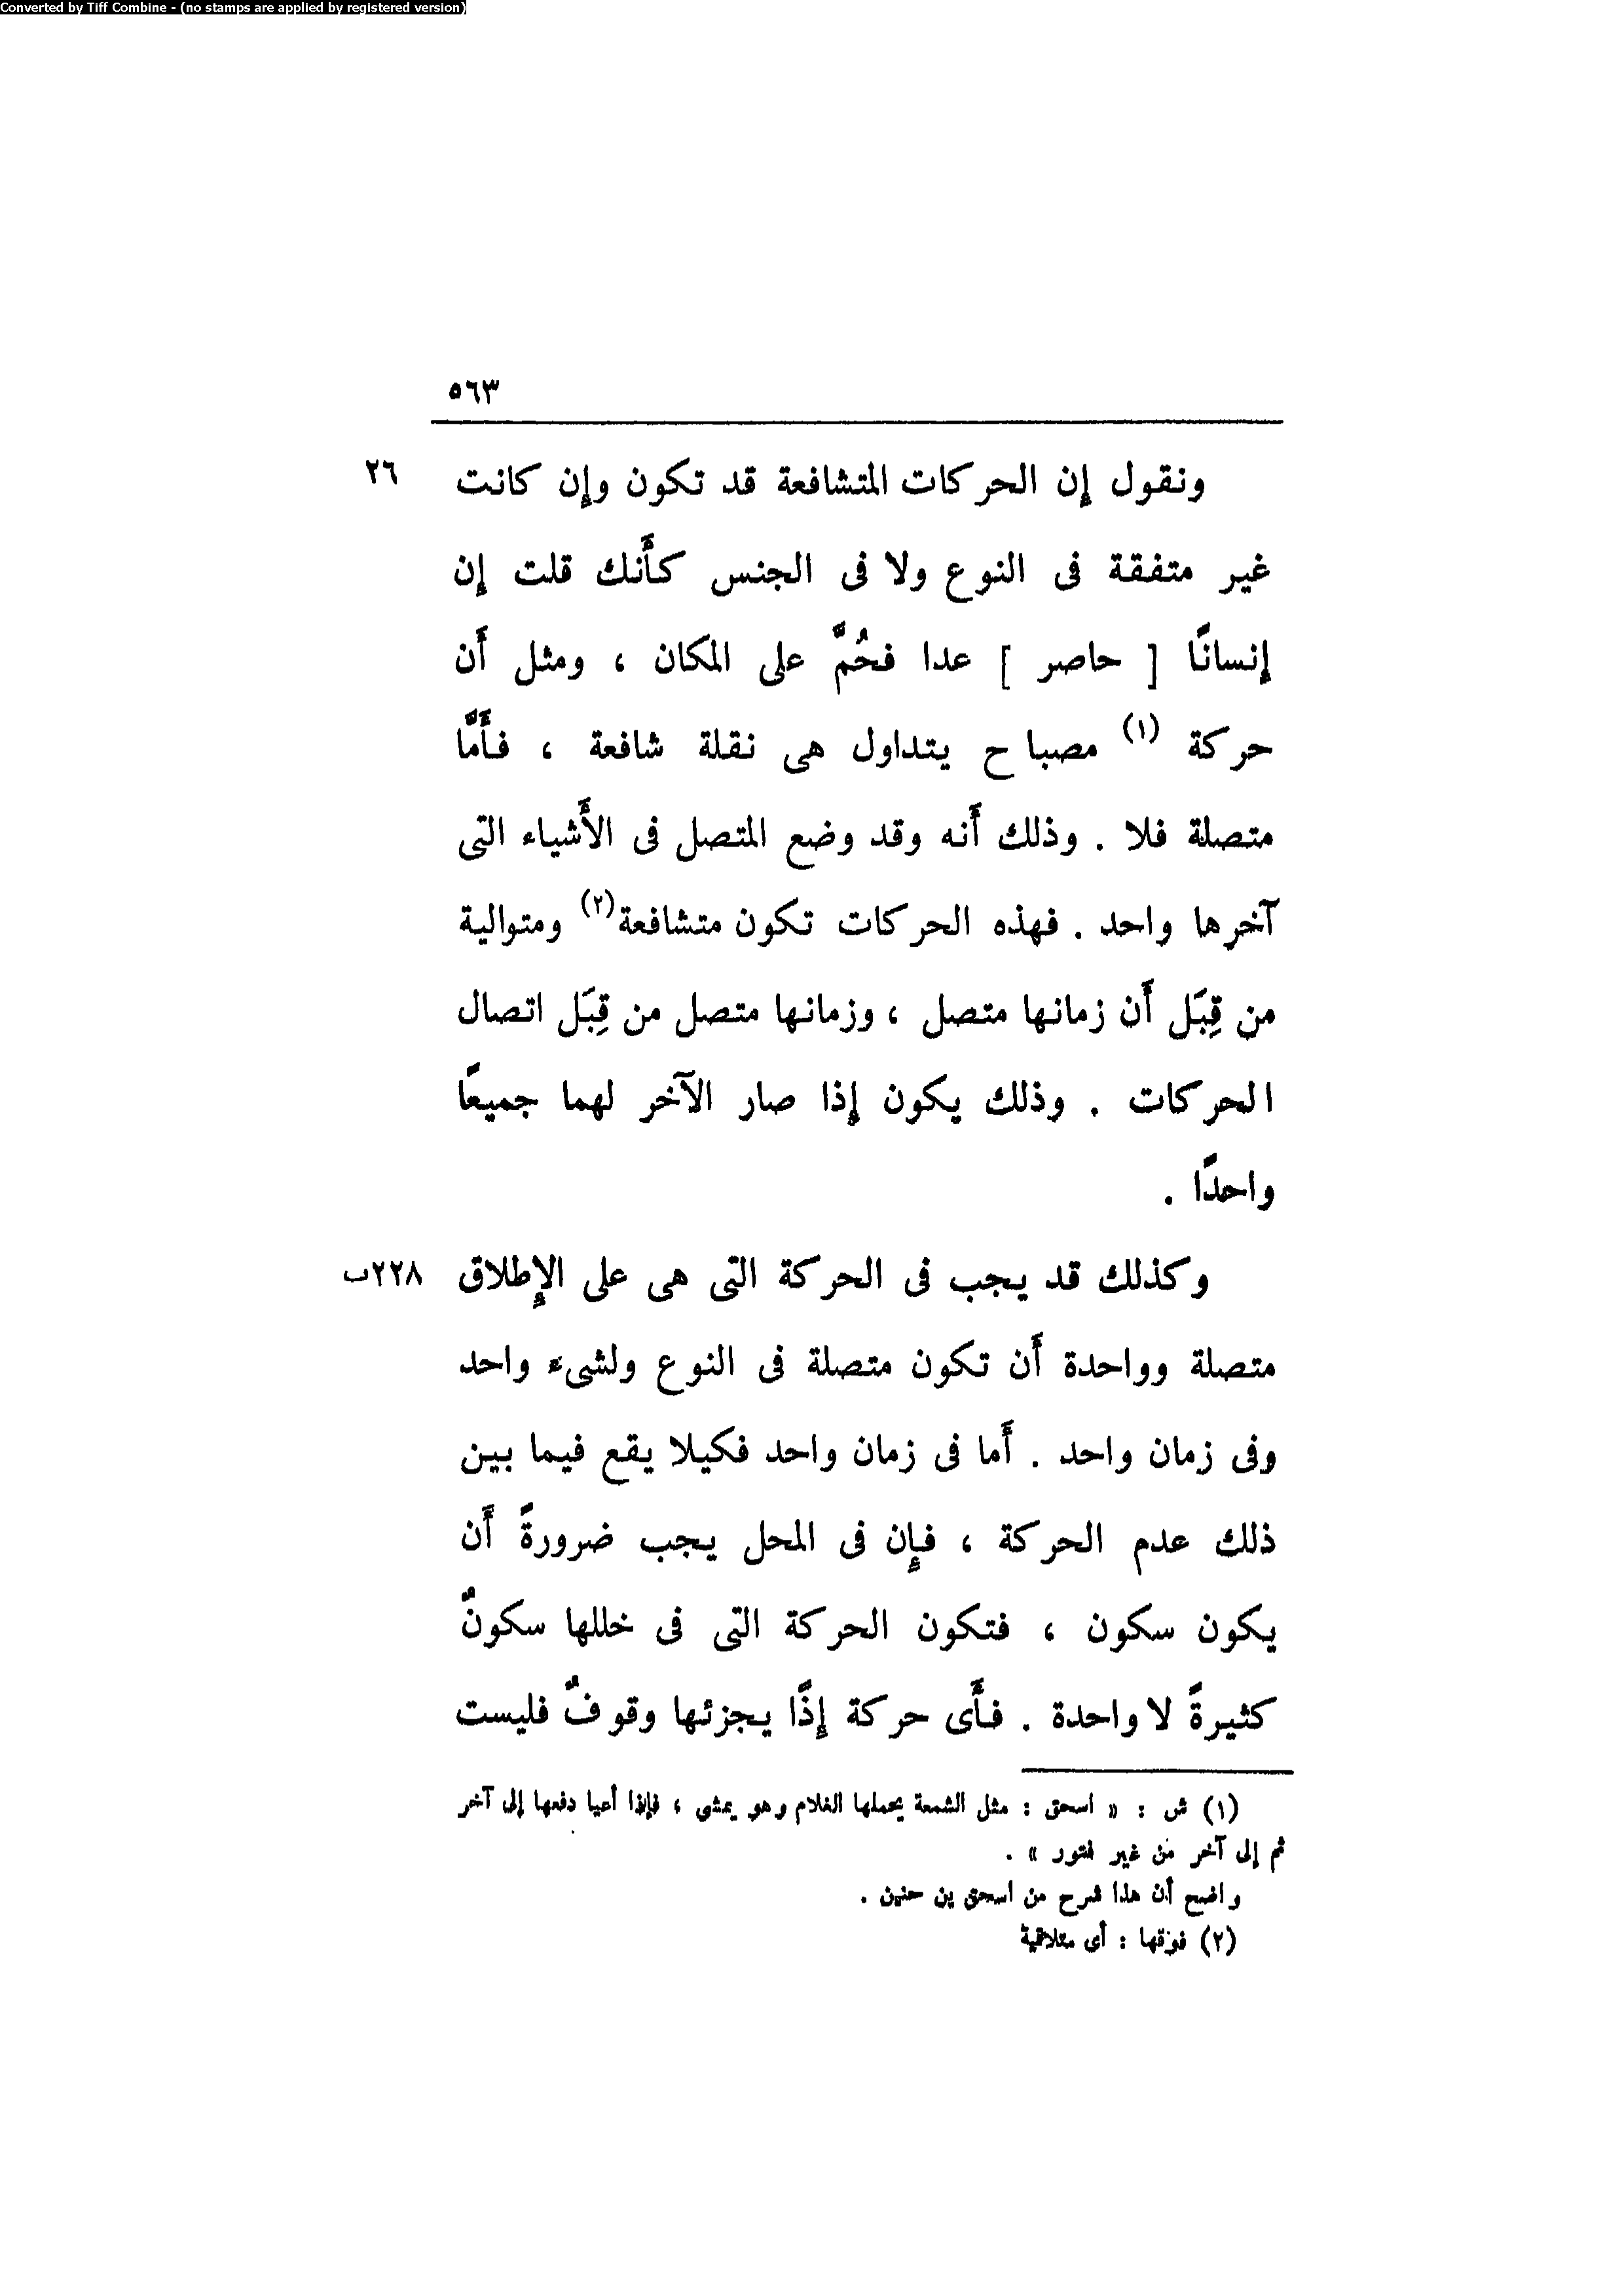 Converted by Tiff Combine - (no stamps are applied by registered version)
٥٦٣
ونقول إن الحركات المتشافعة قد تكون وإن كانت ٢٦
غير متفقة فى النوع ولا فى الجنس كأَنك قلت إن
إنسانًا [ حاصر ] عدا فحُمَّ على المكان ، ومثل أَن
حركة (١) مصباح يتداول هى نقلة شافعة ، فأَمَّا
متصلة فلا . وذلك أَنه وقد وضع المتصل فى الأَشياء التى
آخرها واحد . فهذه الحركات تكون متشافعة(٢) ومتوالية
من قِبَل أَن زمانها متصل ، وزمانها متصل من قِبَل اتصال
الحركات . وذلك يكون إذا صار الآخر لهما جميعًا
واحدًا .
وكذلك قد يجب فى الحركة التى هى على الإطلاق ٢٢٨ب
متصلة وواحدة أَن تكون متصلة فى النوع ولشىء واحد
وفى زمان واحد . أَما فى زمان واحد فكيلا يقع فيما بين
ذلك عدم الحركة ، فإن فى المحل يجب ضرورةً أَن
يكون سكون ، فتكون الحركة التى فى خللها سكونٌ
كثيرةً لا واحدة . فأَى حركة إذًا يجزئها وقوفٌ فليست
(١) ش : « اسحق : مثل الشمعة يحملها الغلام وهو يمشى ، فإذا أعيا دفعها إلى آخر
ثم إلى آخر من غير فتور » .
واضح أن هذا شرح من اسحق بن حنين .
(٢) فوقها : أى متلاقية